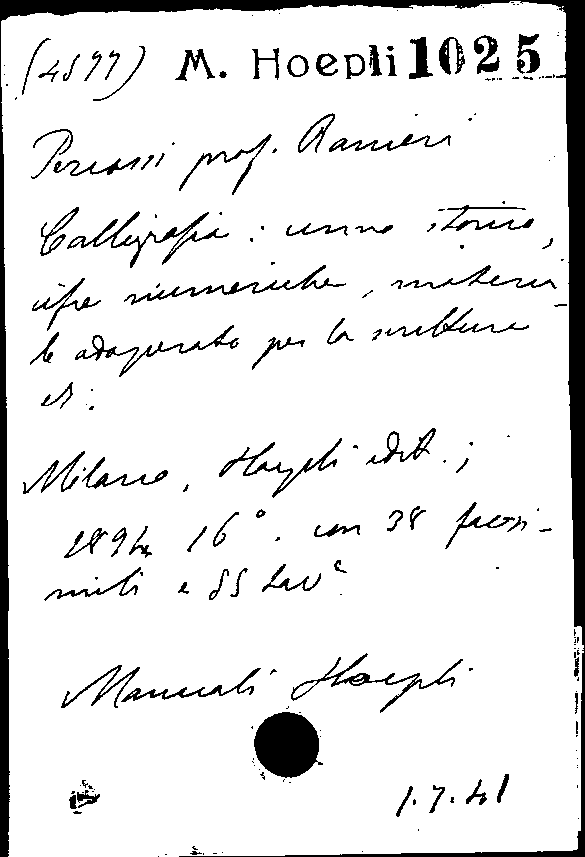 (4577) M. Hoepli 1025
Percossi prof. Ranieri
Calligrafia : cenno storico,
cifre numeriche, materia-
le adoperato per la scrittura
ect.
Milano, Hoepli edit. ;
1894 16° con 38 facsi-
mili e 55 tav.e
Manuali Hoepli
1.7.41